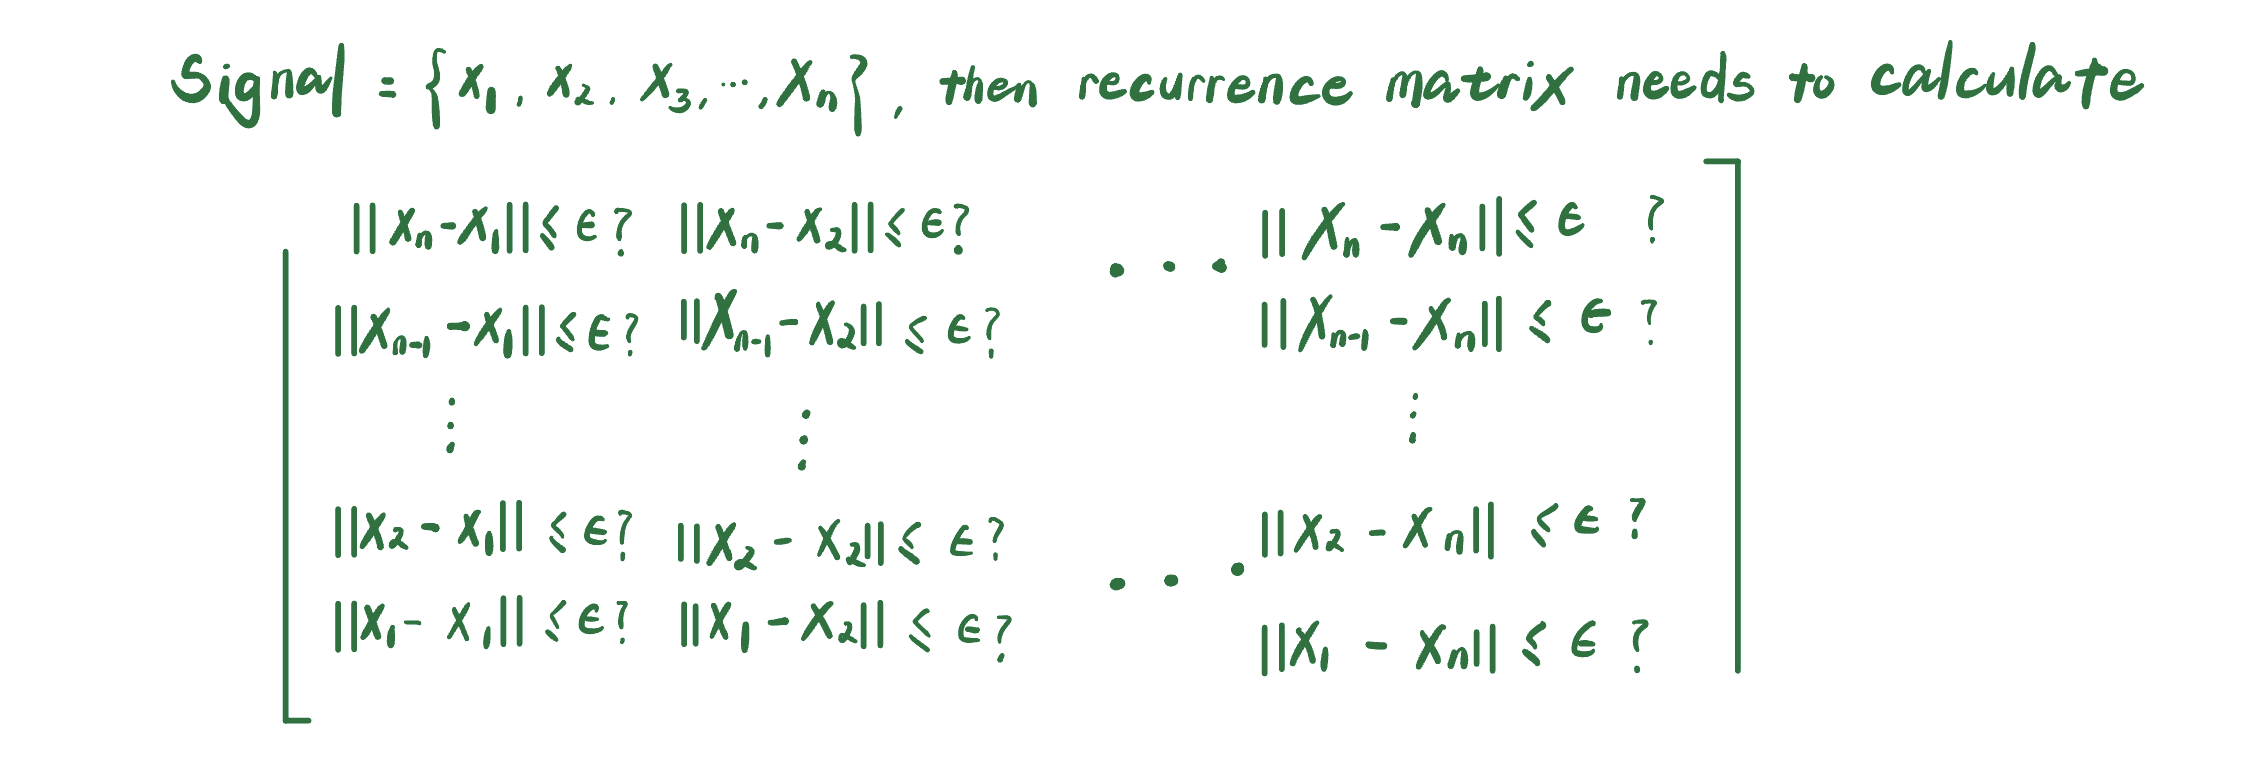 Signal = { x₁, x₂, x₃, ..., xₙ }, then recurrence matrix needs to calculate
||xₙ - x₁|| ≤ ϵ ? ||xₙ - x₂|| ≤ ϵ ? ... ||xₙ - xₙ|| ≤ ϵ ?
||xₙ₋₁ - x₁|| ≤ ϵ ? ||xₙ₋₁ - x₂|| ≤ ϵ ? ||xₙ₋₁ - xₙ|| ≤ ϵ ?
⋮ ⋮ ⋮
||x₂ - x₁|| ≤ ϵ ? ||x₂ - x₂|| ≤ ϵ ? ... ||x₂ - xₙ|| ≤ ϵ ?
||x₁ - x₁|| ≤ ϵ ? ||x₁ - x₂|| ≤ ϵ ? ||x₁ - xₙ|| ≤ ϵ ?